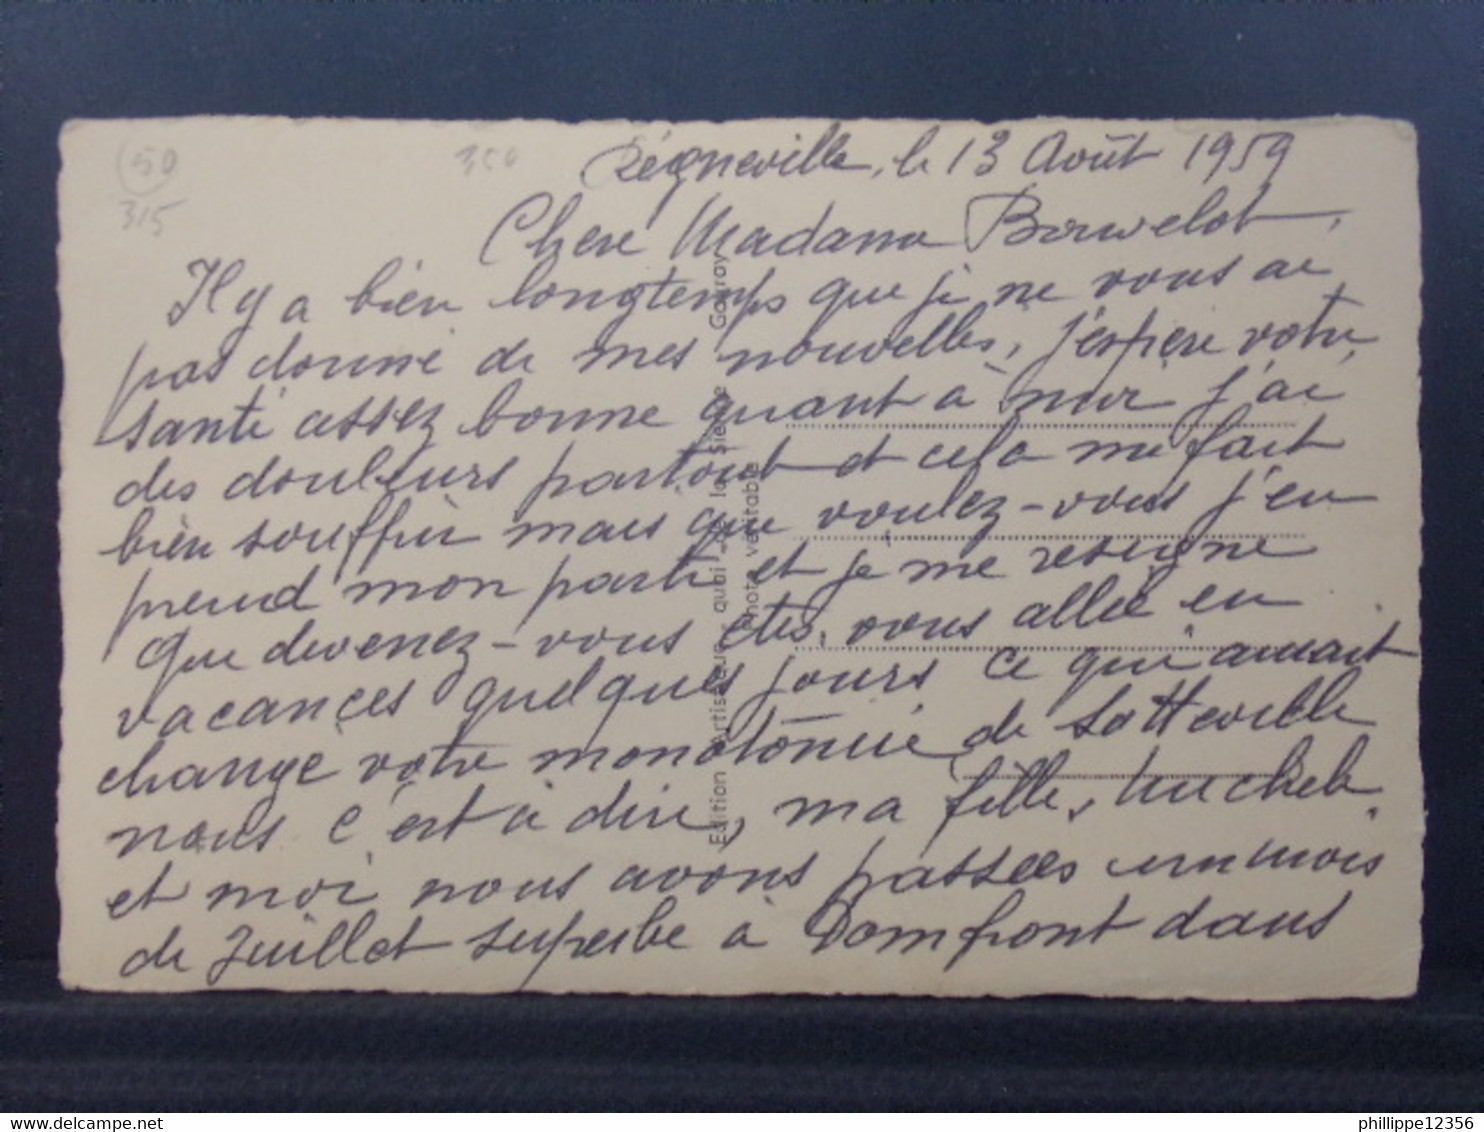 (50)
315
350
Régneville, le 13 Août 1959
Chere Madame
Il y a bien longtemps que je ne vous ai
pas donné de mes nouvelles, j'espere votre
santé assez bonne quant à moi j'ai
des douleurs partout et cela me fait
bien souffrir mais que voulez-vous j'en
prend mon parti et je me resigne
Que devenez-vous etes, vous allée en
vacances quelques jours ce qui aurait
change votre monotônie de Sotteville
nous c'est à dire, ma fille, Michele
et moi nous avons passées un mois
de Juillet superbe à Domfront dans
Edition Artistique quai de la Sienne Gavray
Photo véritable
delcampe.net
philippe12356